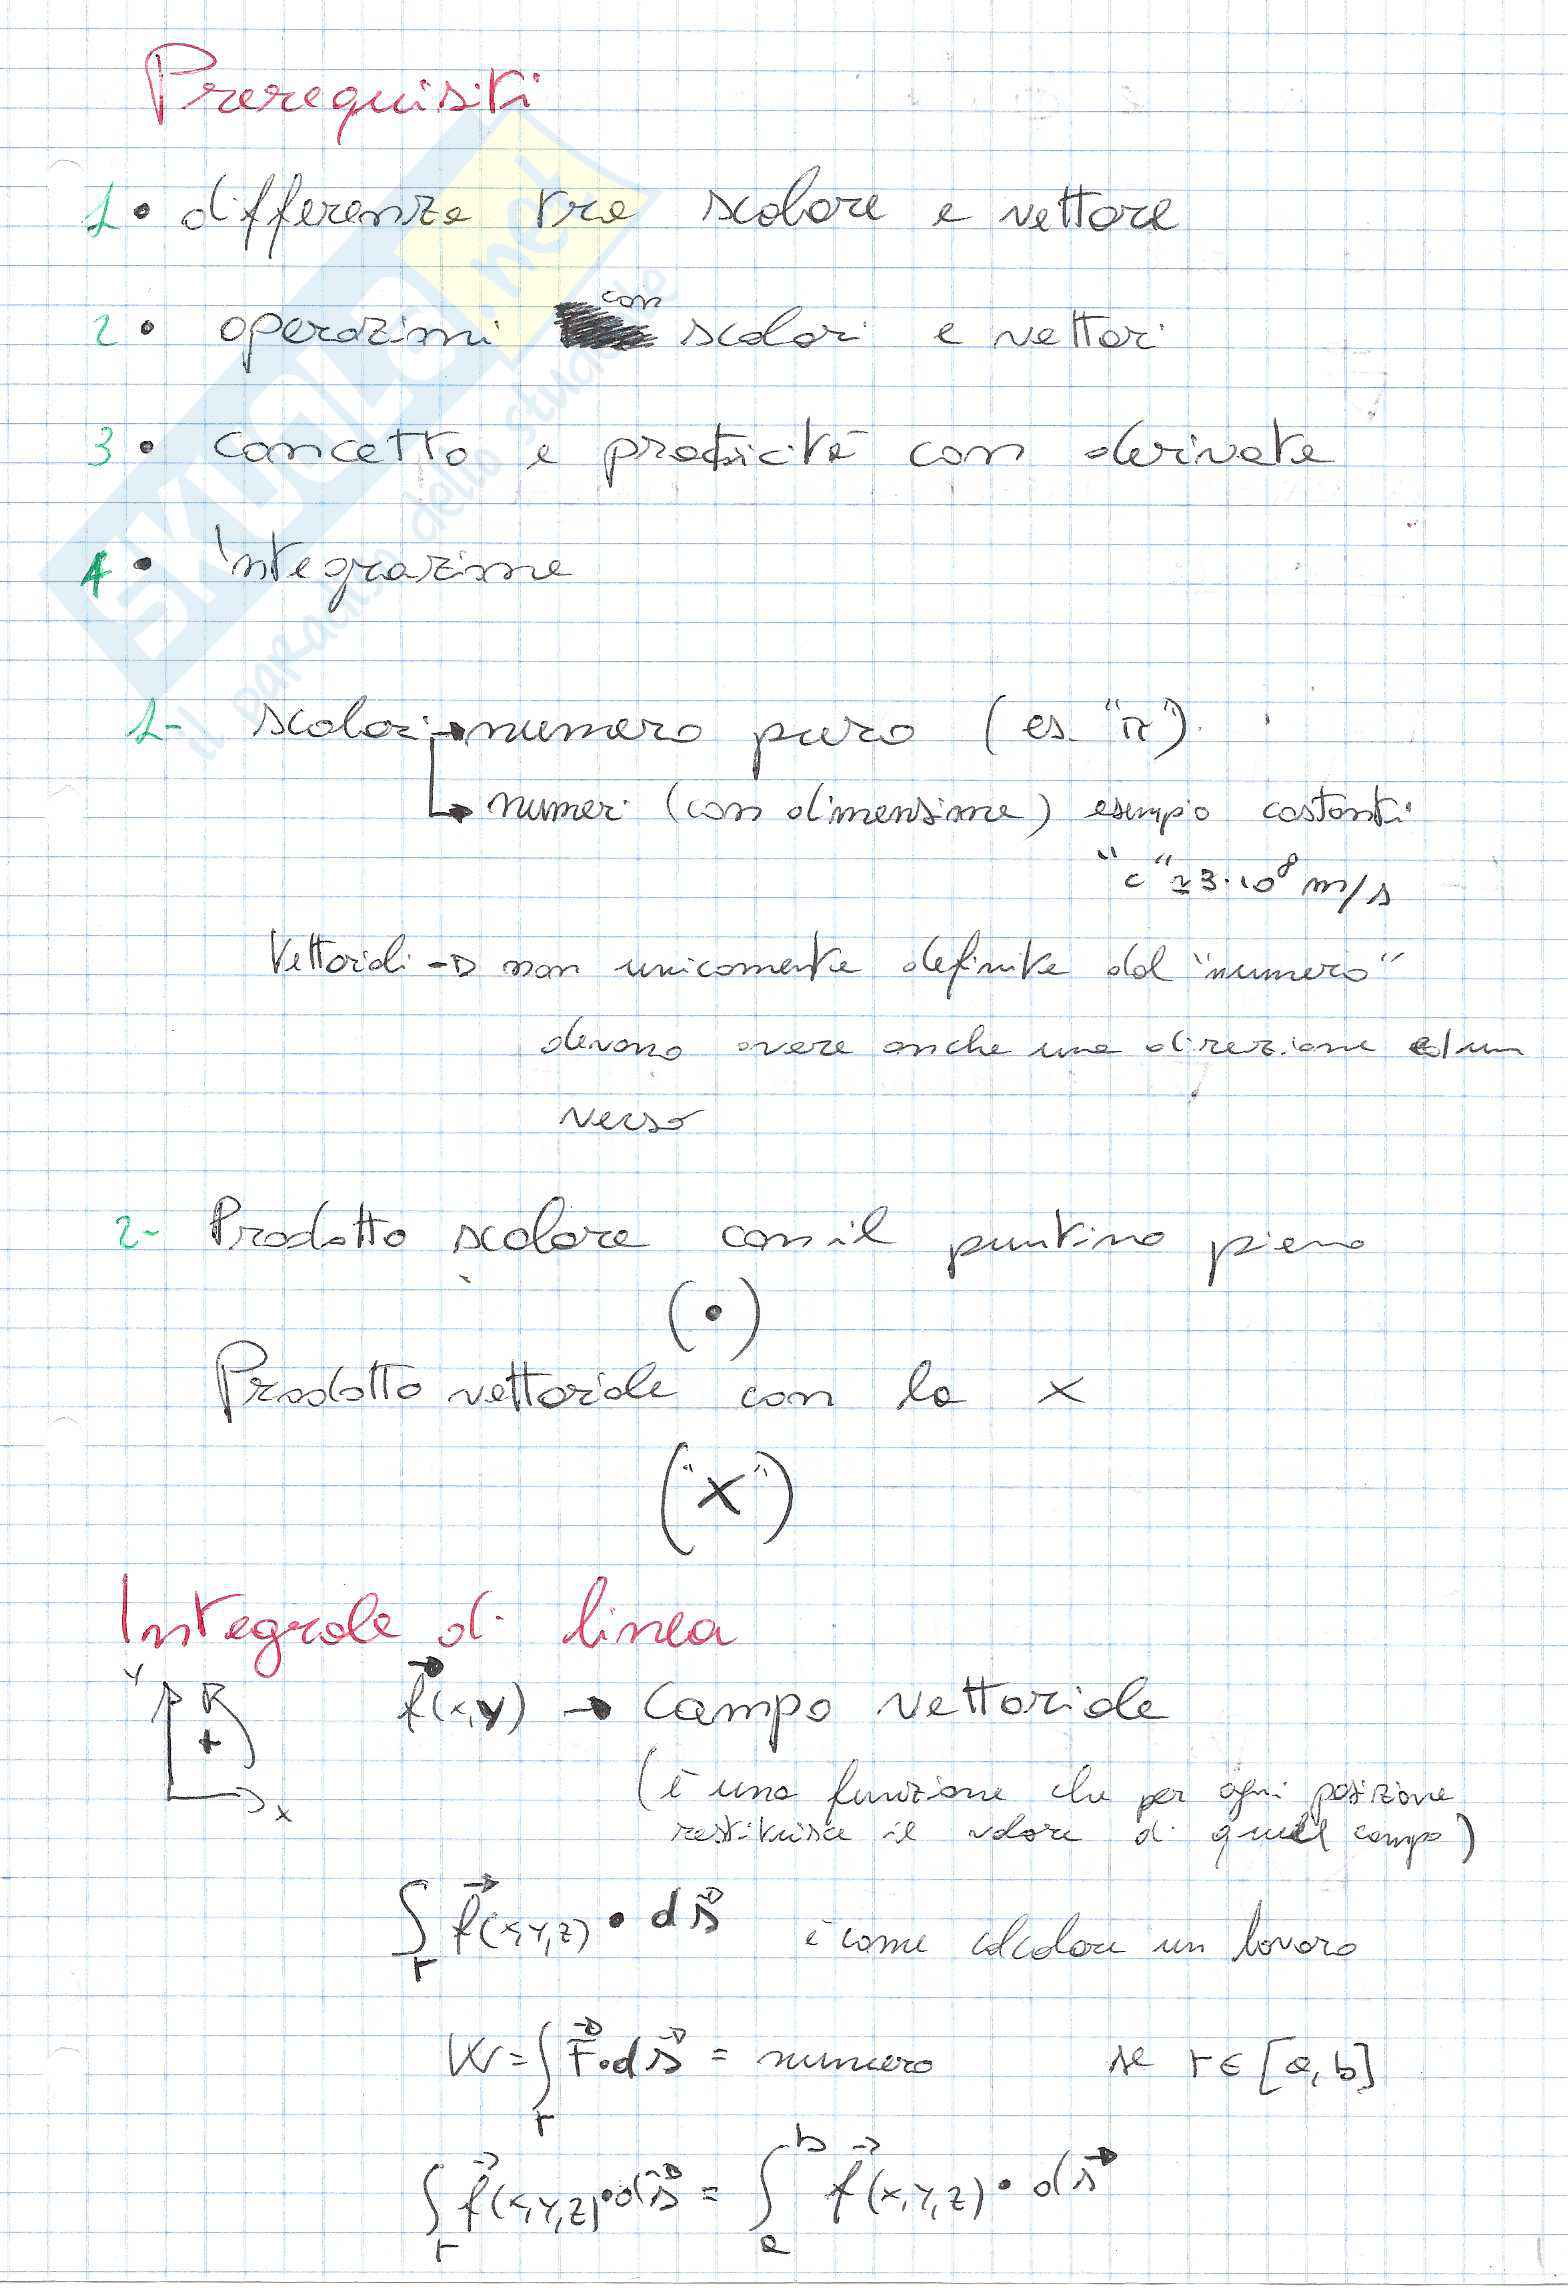 Prerequisiti
1 • differenze tra scalare e vettore
2 • operazioni con scalari e vettori
3 • concetto e praticità con derivate
4 • integrazione
1- scalari → numero puro (es. "π")
→ numeri (con dimensione) esempio costanti
"c" ≃ 3·10⁸ m/s
Vettoriali → non unicamente definite dal "numero"
devono avere anche una direzione ed un
verso
2- Prodotto scalare con il puntino pieno
(•)
Prodotto vettoriale con la x
("X")
Integrale di linea
Y
R
+
X
f⃗(x,y) → Campo vettoriale
(è una funzione che per ogni posizione
restituisce il valore di quel campo)
∫_r f⃗(x,y,z) • ds⃗ è come calcolare un lavoro
W = ∫_r F⃗ • ds⃗ = numero se r ∈ [a, b]
∫_r f⃗(x,y,z) • ds⃗ = ∫_a^b f⃗(x,y,z) • ds⃗
SKUOLA.net
il paradiso dello studente